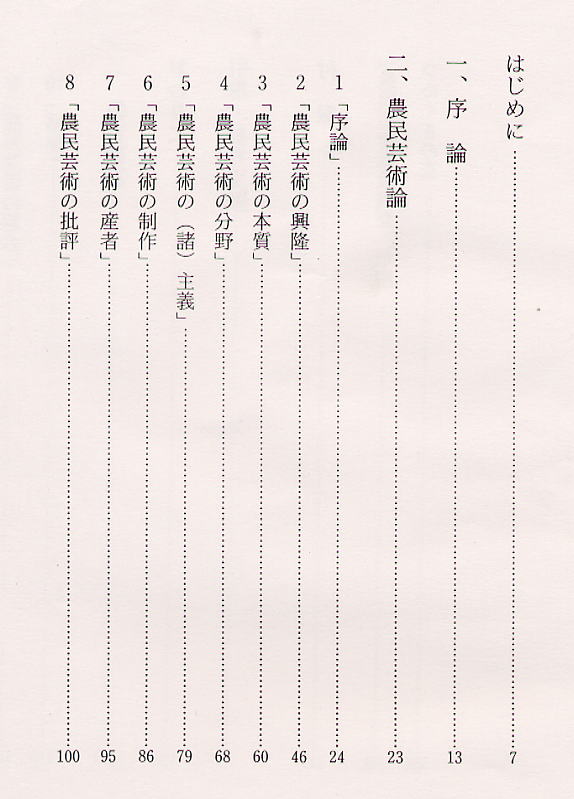 はじめに……………………7
一、序　論……………………13
二、農民芸術論……………………23
1「序論」……………………24
2「農民芸術の興隆」……………………46
3「農民芸術の本質」……………………60
4「農民芸術の分野」……………………68
5「農民芸術の（諸）主義」……………………79
6「農民芸術の制作」……………………86
7「農民芸術の産者」……………………95
8「農民芸術の批評」……………………100